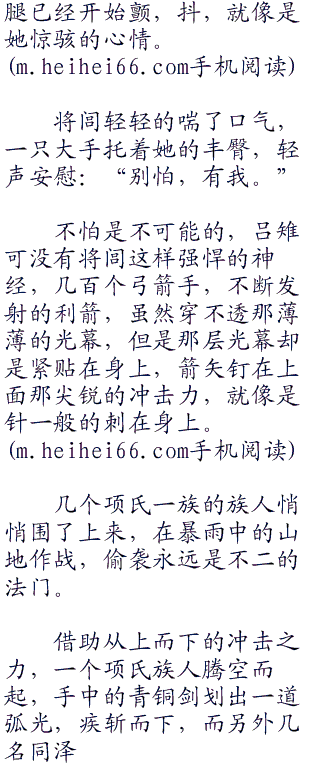 腿已经开始颤，抖，就像是
她惊骇的心情。
(m.heihei66.com手机阅读)
将闾轻轻的喘了口气，
一只大手托着她的丰臀，轻
声安慰：“别怕，有我。”
不怕是不可能的，吕雉
可没有将闾这样强悍的神
经，几百个弓箭手，不断发
射的利箭，虽然穿不透那薄
薄的光幕，但是那层光幕却
是紧贴在身上，箭矢钉在上
面那尖锐的冲击力，就像是
针一般的刺在身上。
(m.heihei66.com手机阅读)
几个项氏一族的族人悄
悄围了上来，在暴雨中的山
地作战，偷袭永远是不二的
法门。
借助从上而下的冲击之
力，一个项氏族人腾空而
起，手中的青铜剑划出一道
弧光，疾斩而下，而另外几
名同泽